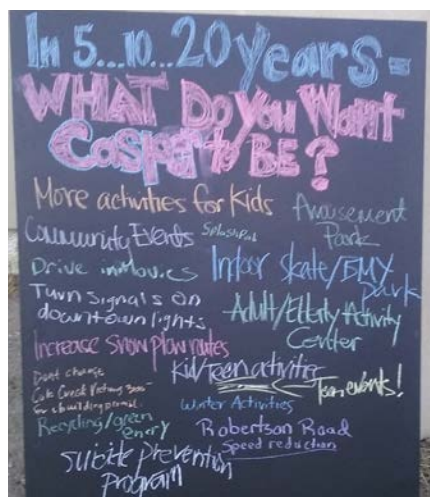 In 5...10...20 years -
WHAT Do You Want
Casper to BE?
More activities for Kids
Amusement
Park
Community Events
SplashPad
Drive in Movies
Indoor skate/BMX
park
Turn signals on
downtown lights
Adult/Elderly Activity
Center
Increase snow plow routes
Kid/Teen activities
Teen events!
Dont charge
for a building permit.
Winter Activities
Recycling/green
Robertson Road
Speed reduction
Suicide Prevention
Program